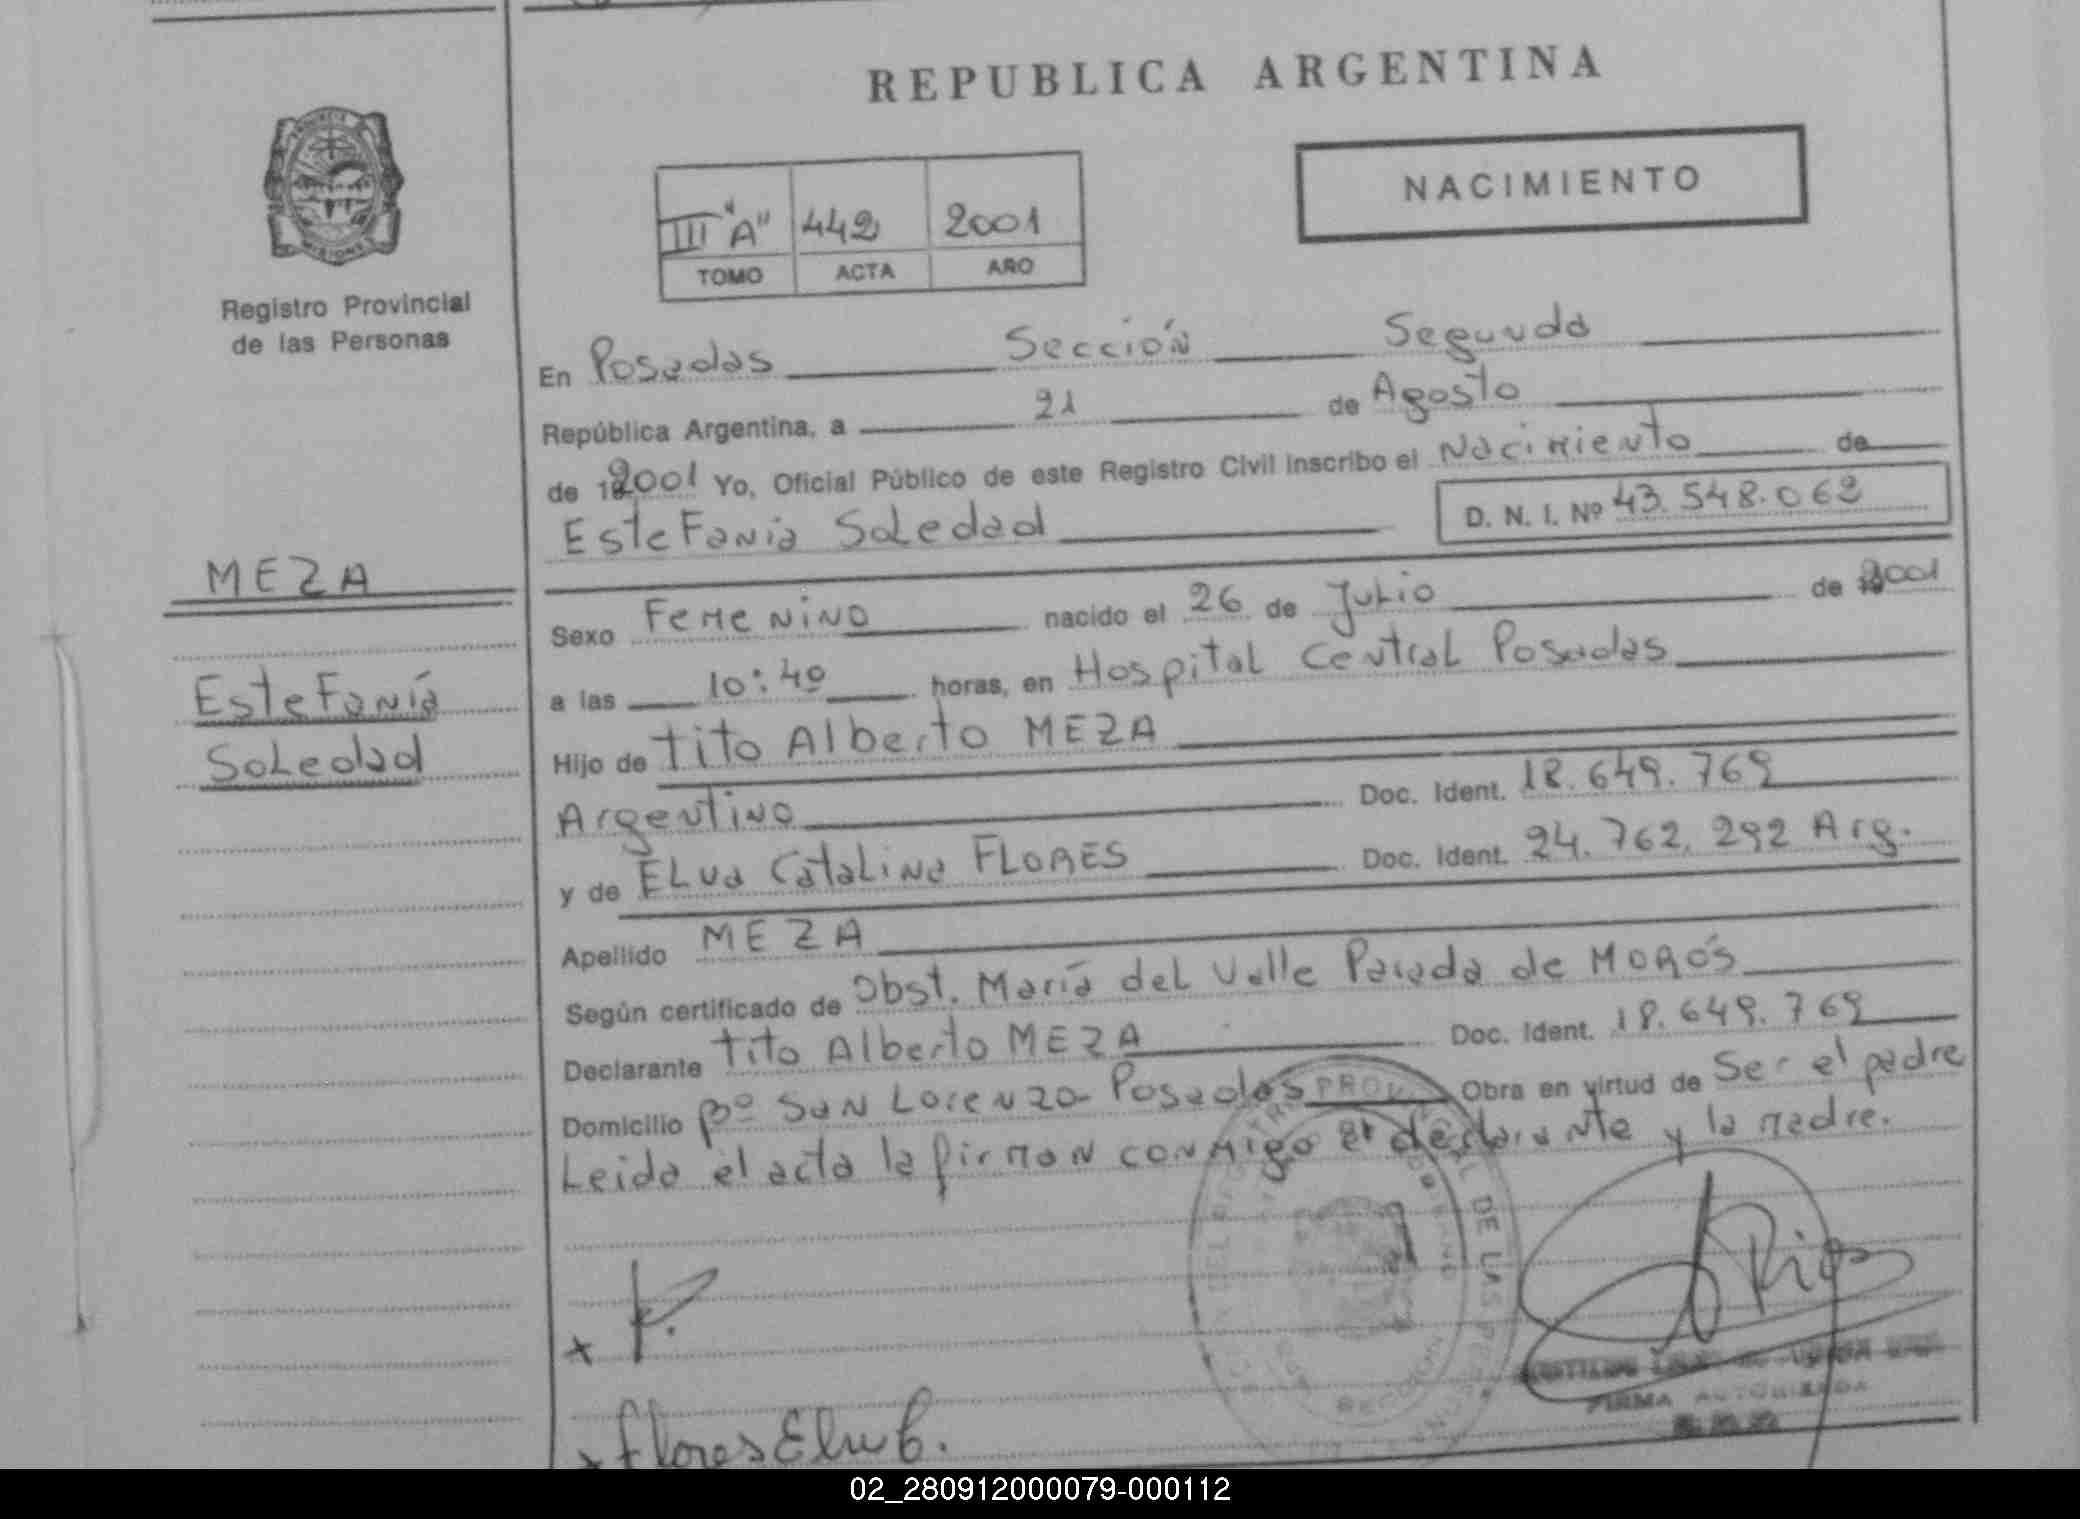 REPUBLICA ARGENTINA
NACIMIENTO
III "A" 442 2001
TOMO ACTA AÑO
Registro Provincial
de las Personas
En Posadas Sección Segunda
República Argentina, a 21 de Agosto
de 2001 Yo, Oficial Público de este Registro Civil inscribo el Nacimiento de
Estefania Soledad D. N. I. Nº 43.548.062
MEZA
Estefanía
Soledad
Sexo Femenino nacido el 26 de Julio de 2001
a las 10:40 horas, en Hospital Central Posadas
Hijo de Tito Alberto MEZA
Argentino Doc. Ident. 18.649.769
y de Elva Catalina FLORES Doc. Ident. 24.762.292 Arg.
Apellido MEZA
Según certificado de Obst. María del Valle Parada de
Declarante Tito Alberto MEZA Doc. Ident. 18.649.769
Domicilio Bº San Lorenzo-Posadas Obra en virtud de Ser el padre
Leida el acta la firman conmigo el declarante y la madre.
Flores Elva C.
FIRMA AUTORIZADA
02_280912000079-000112